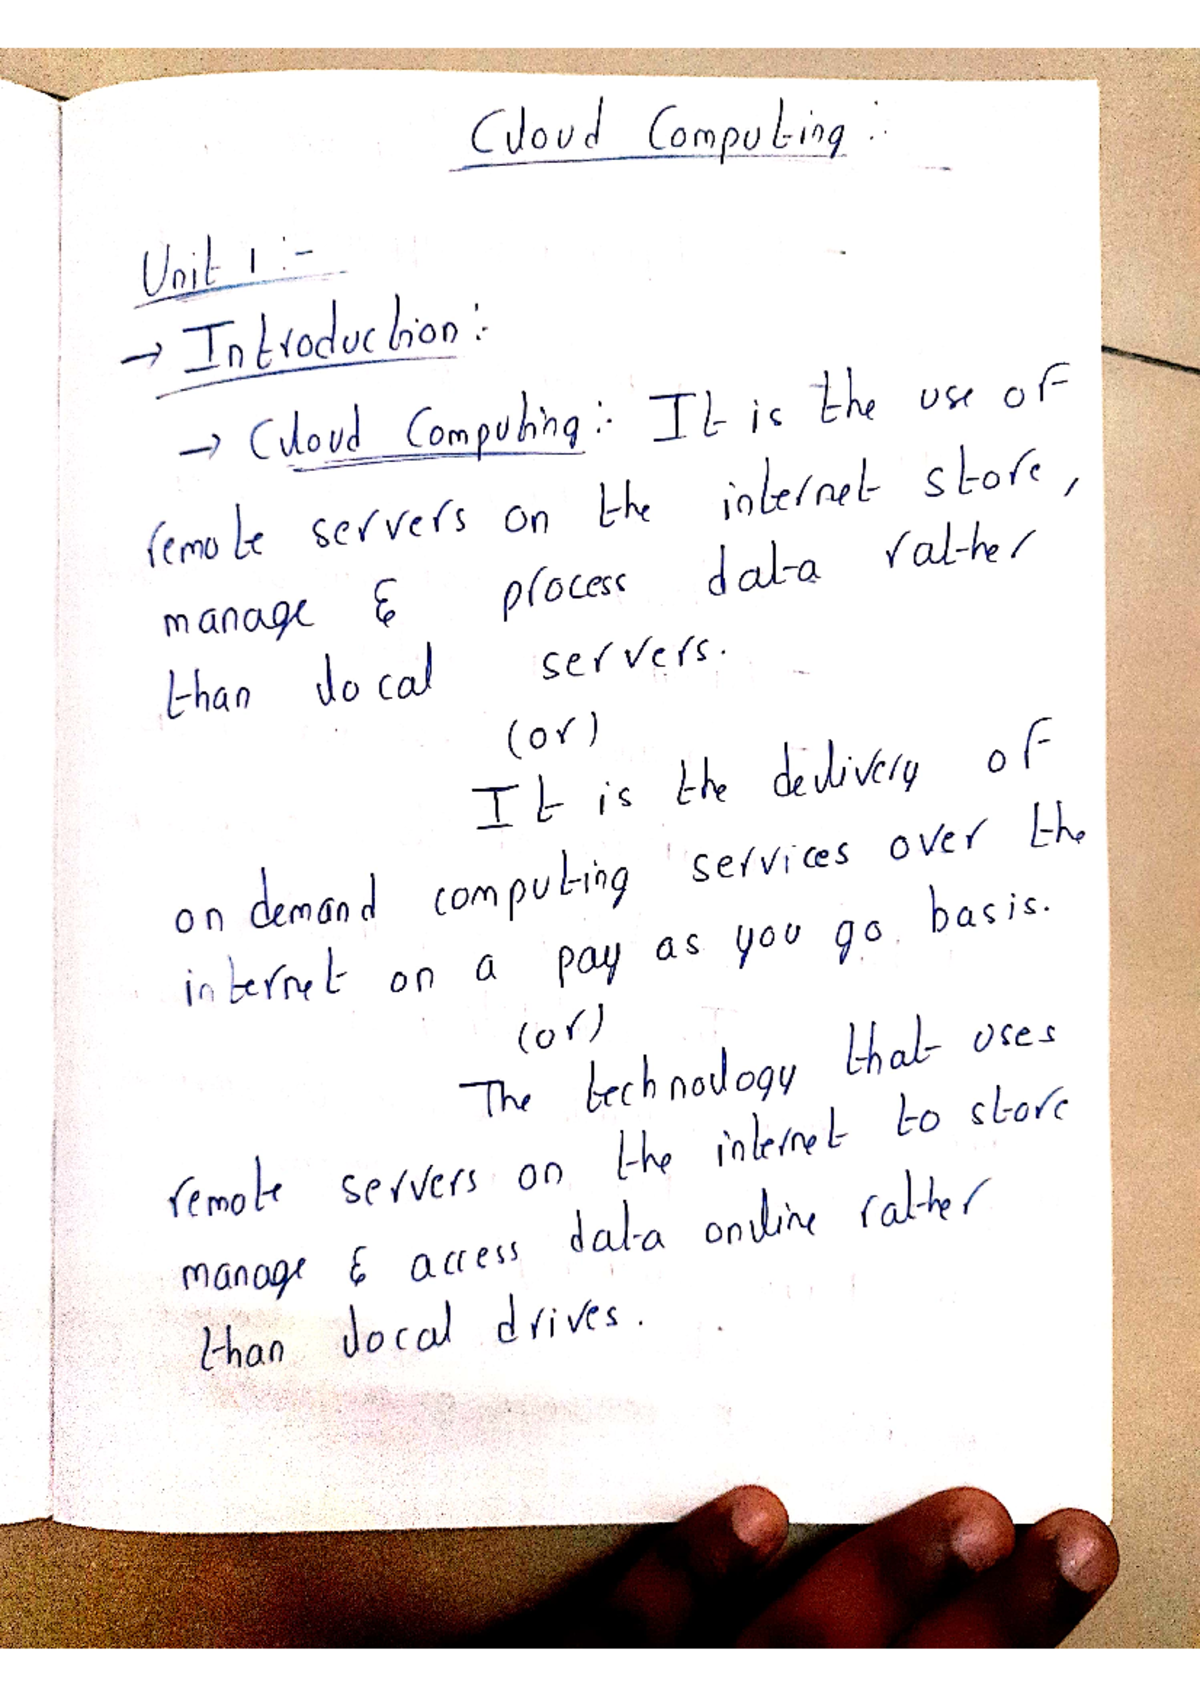 Cloud Computing :-
Unit 1 :-
→ Introduction :-
→ Cloud Computing :- It is the use of
remote servers on the internet store,
manage & process data rather
than local servers.
(or)
It is the delivery of
on demand computing services over the
internet on a pay as you go basis.
(or)
The technology that uses
remote servers on the internet to store
manage & access data online rather
than local drives.